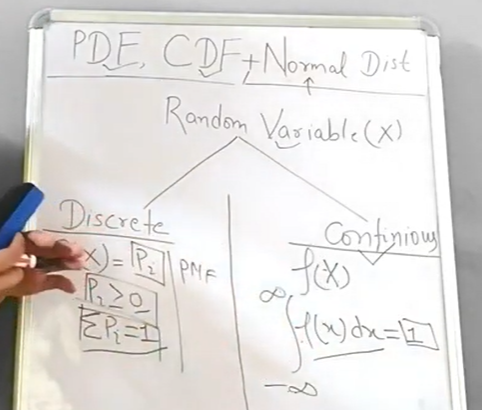 PDF, CDF, + Normal Dist
Random Variable (X)
Discrete
X) = P_i | PMF
P_i ≥ 0
ΣP_i = 1
Continious
f(X)
∫_{-∞}^{∞} f(x) dx = 1